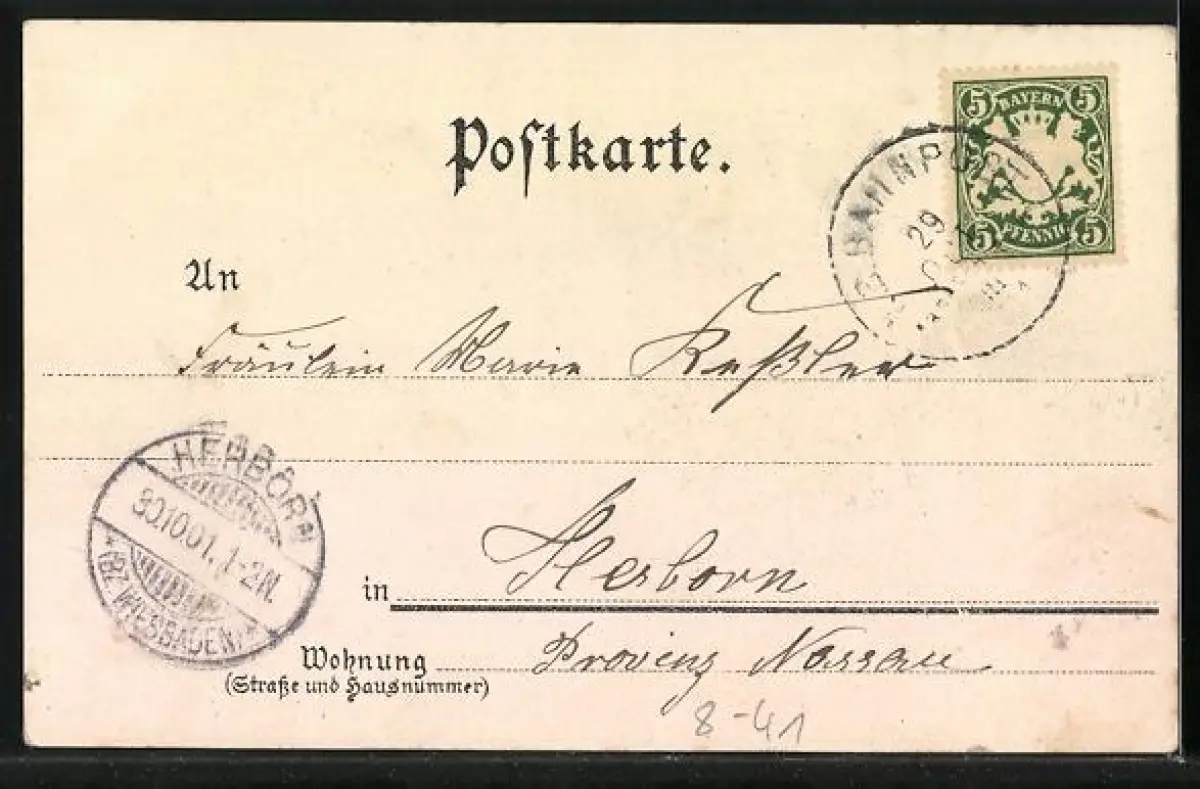 Postkarte.
5 BAYERN 5
5 PFENNIG 5
BAHNPOST
29
An
Fräulein Marie Keßler
HERBORN
30.10.01. 1-2N.
* (BZ. WIESBADEN) *
in Herborn
Wohnung Provinz Nassau
(Straße und Hausnummer)
8-41